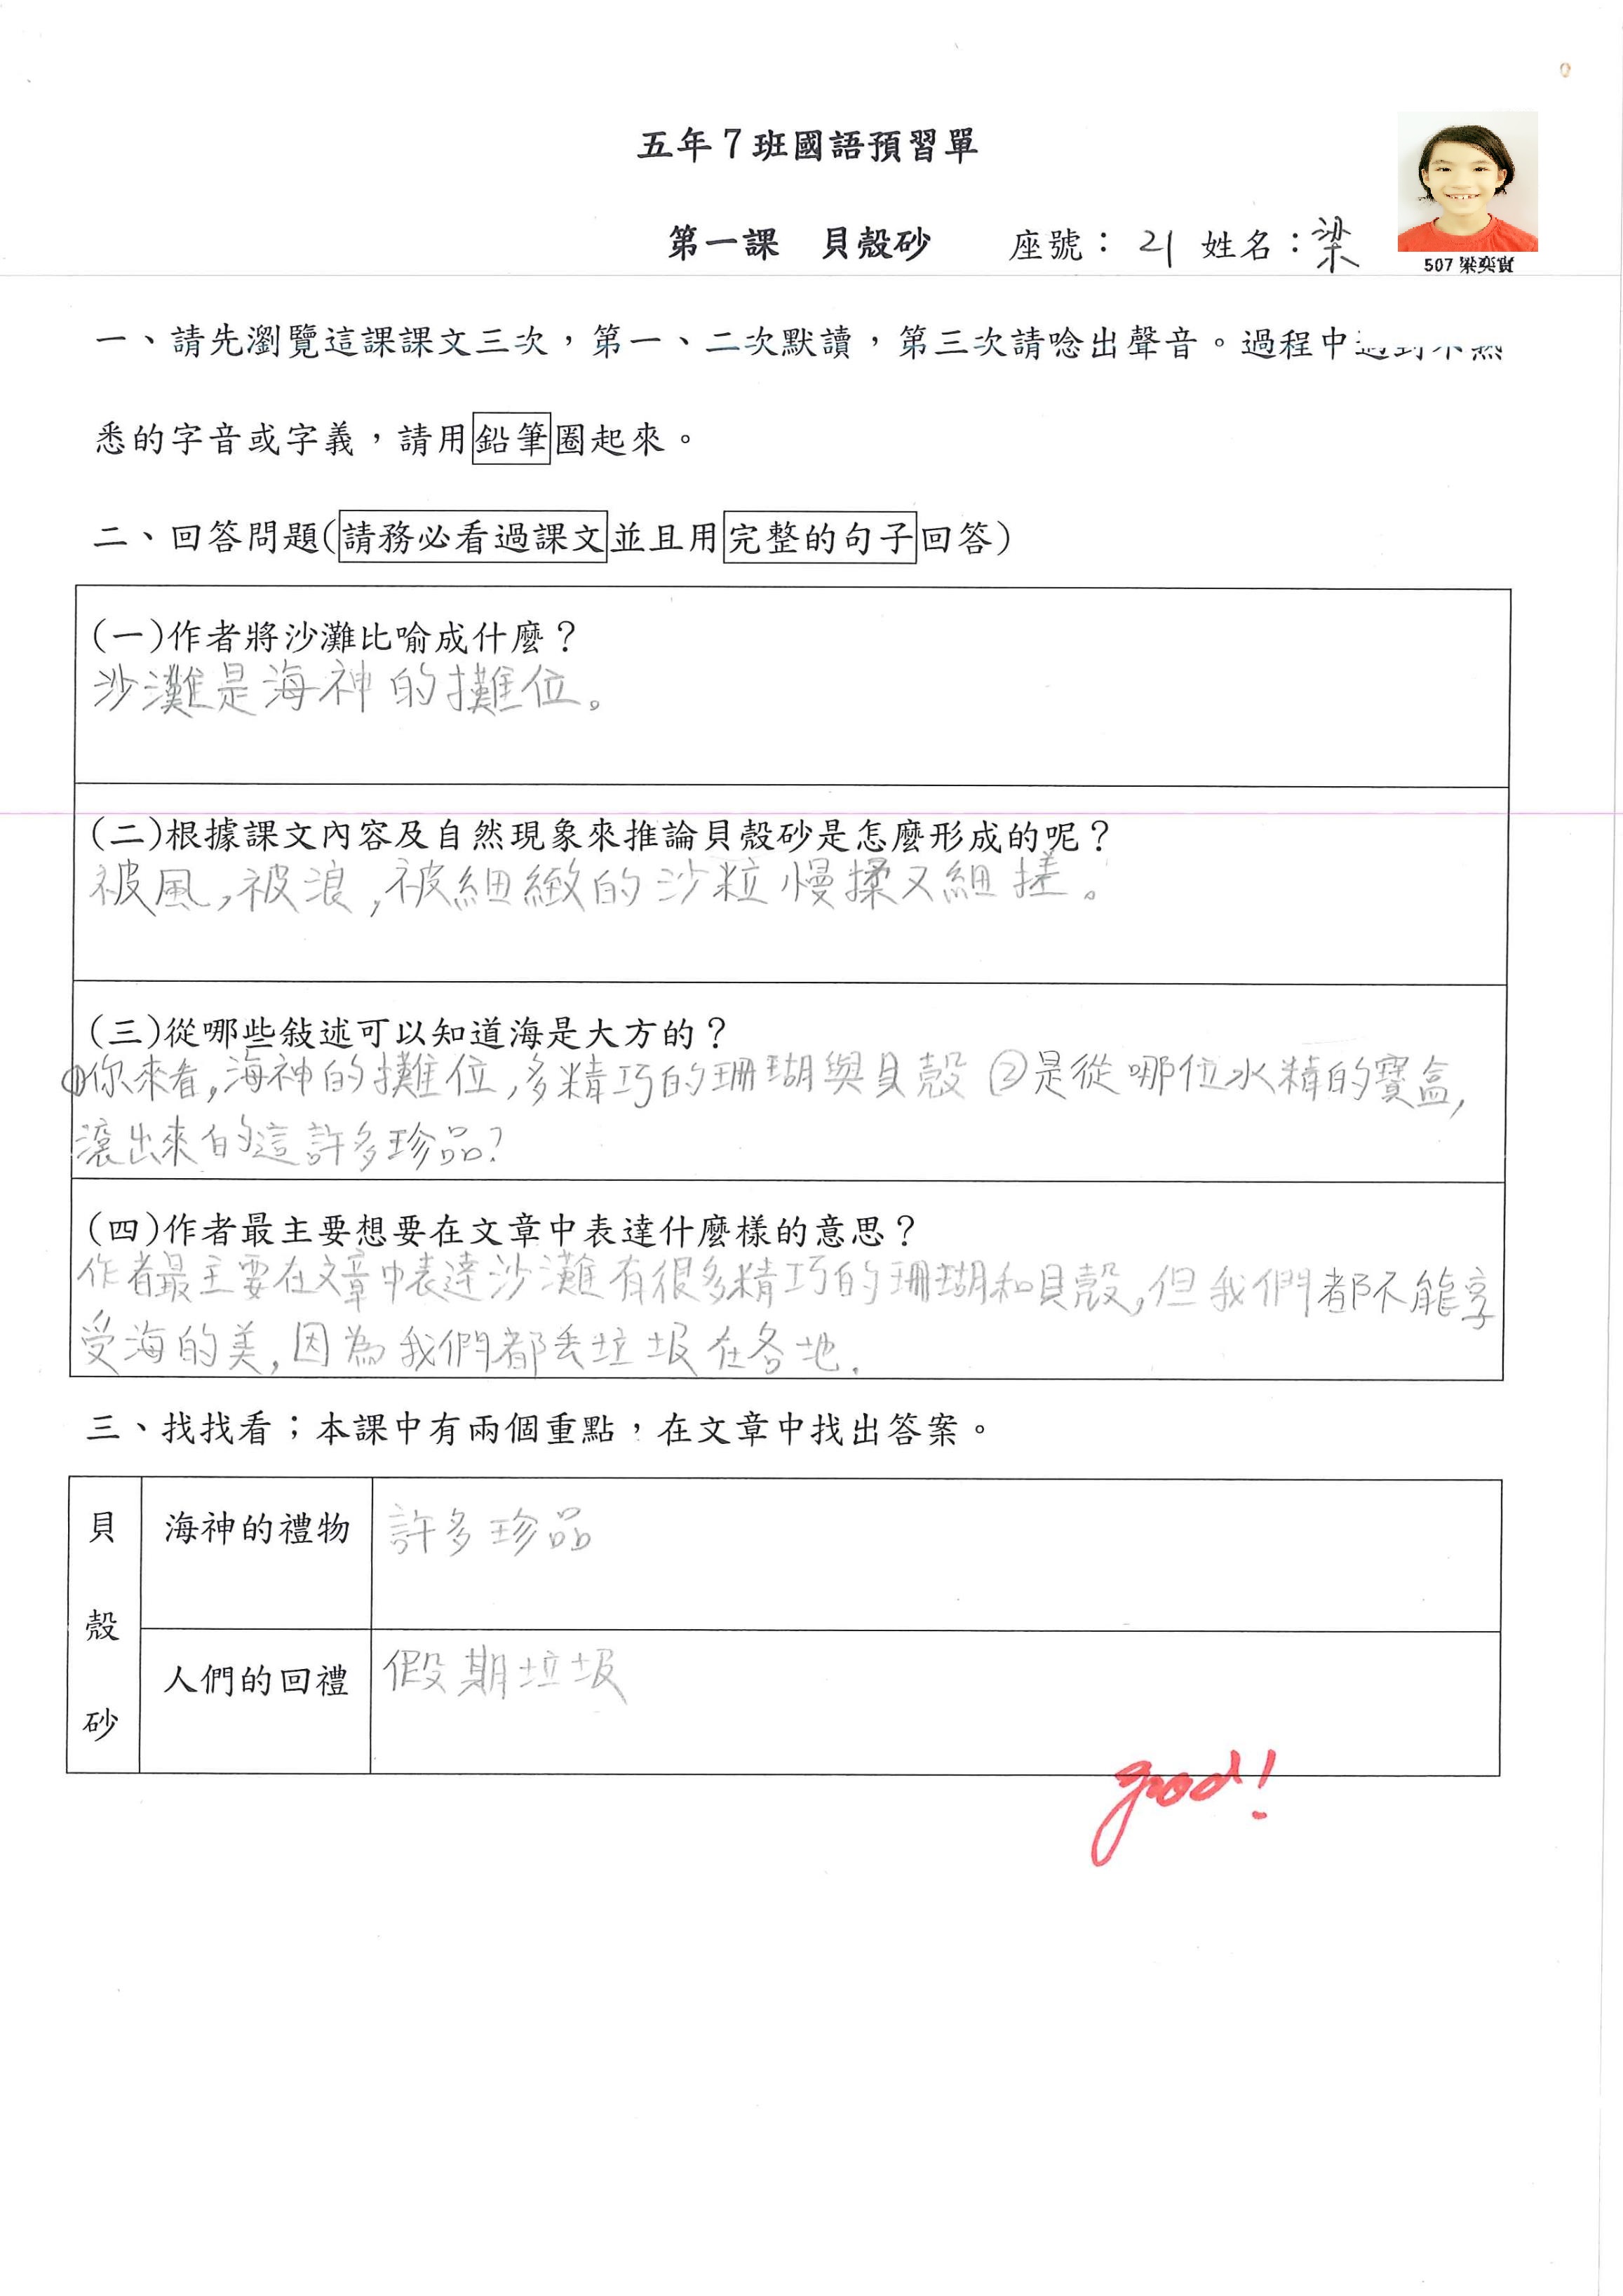 五年7班國語預習單
第一課 貝殼砂 座號：21 姓名：梁
507 梁奕
一、請先瀏覽這課課文三次，第一、二次默讀，第三次請唸出聲音。過程中
悉的字音或字義，請用鉛筆圈起來。
二、回答問題(請務必看過課文並且用完整的句子回答)
(一)作者將沙灘比喻成什麼？
沙灘是海神的攤位。
(二)根據課文內容及自然現象來推論貝殼砂是怎麼形成的呢？
被風,被浪,被細緻的沙粒慢揉又細搓。
(三)從哪些敍述可以知道海是大方的？
①你來看,海神的攤位,多精巧的珊瑚與貝殼 ②是從哪位水精的寶盒,
滾出來的這許多珍品?
(四)作者最主要想要在文章中表達什麼樣的意思？
作者最主要在文章中表達沙灘有很多精巧的珊瑚和貝殼,但我們都不能享
受海的美,因為我們都丢垃圾在各地.
三、找找看；本課中有兩個重點，在文章中找出答案。
貝殼砂
海神的禮物 許多珍品
人們的回禮 假期垃圾
good!